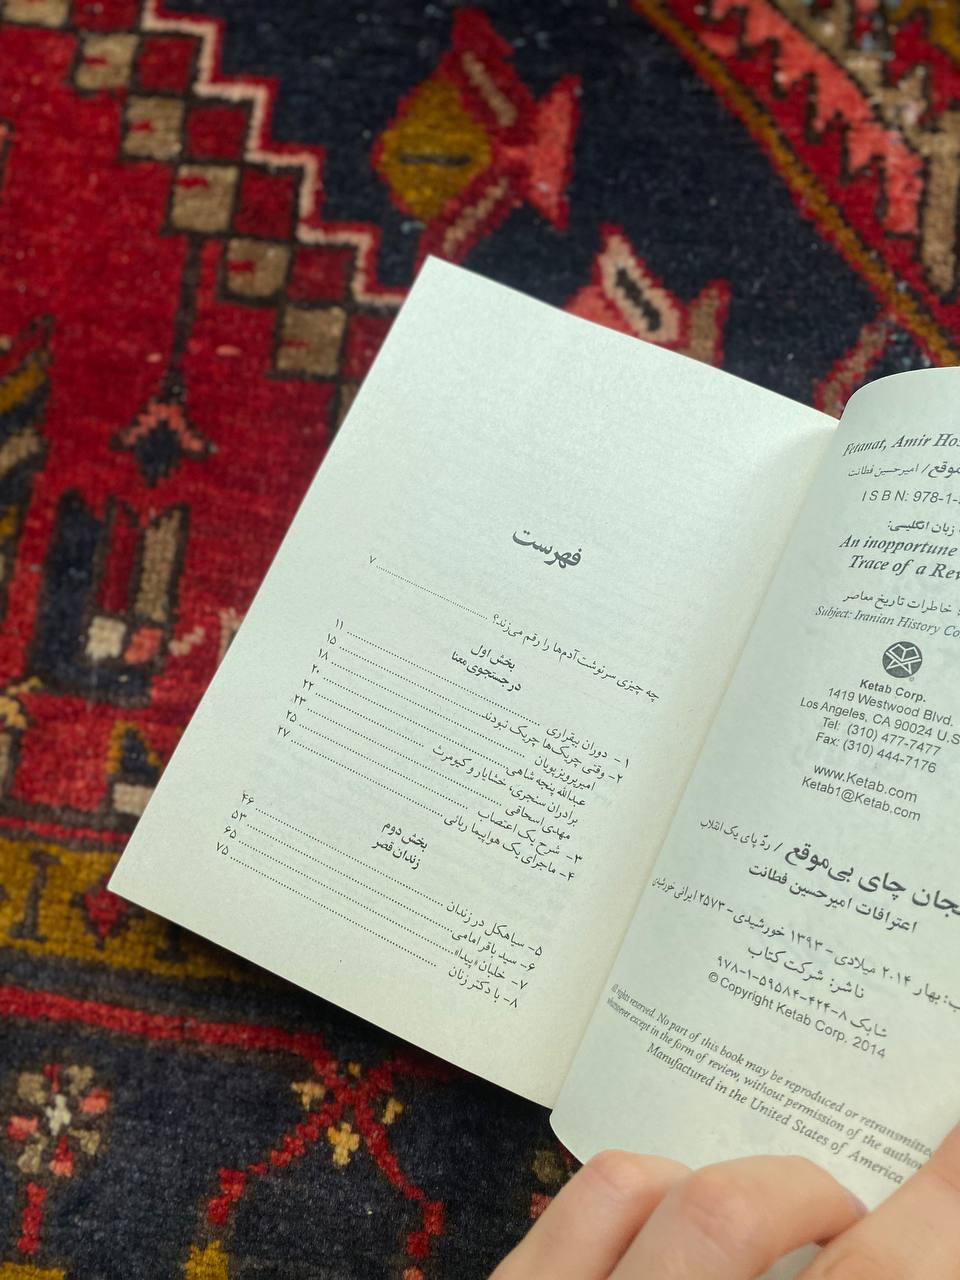 Fetanat, Amir
موقع/ امیرحسین فطانت
ISBN: 978-1-
زبان انگلیسی:
An inopportune
Trace of a
خاطرات تاریخ معاصر
Subject: Iranian History
Ketab Corp.
1419 Westwood Blvd.
Los Angeles, CA 90024
Tel: (310) 477-7477
Fax: (310) 444-7176
www.Ketab.com
Ketab1@Ketab.com
چای بی‌موقع / ردّ پای یک انقلاب
اعترافات امیرحسین فطانت
بهار ۲۰۱۴ میلادی - ۱۳۹۳ خورشیدی - ۲۵۷۳ ایرانی خورشیدی
ناشر: شرکت کتاب
شابک ۸-۴۲۴-۵۹۵۸۴-۱-۹۷۸
© Copyright Ketab Corp. 2014
All rights reserved. No part of this book may be reproduced or retransmitted
whatsoever except in the form of review, without permission of the author
Manufactured in the United States of America
فهرست
چه چیزی سرنوشت آدم‌ها را رقم می‌زند؟ ۷
بخش اول
در جستجوی معنا
۱- دوران بیقراری ۱۱
۲- وقتی چریک‌ها چریک نبودند ۱۵
امیرپرویز پویان ۱۸
عبدالله پنجه‌شاهی ۲۰
برادران سنجری، خشایار و کیومرث ۲۲
مهدی اسحاقی ۲۳
۳- شرح یک اعتصاب ۲۵
۴- ماجرای یک هواپیما ربائی ۲۷
بخش دوم
زندان قصر
۵- سیاهکل در زندان ۴۶
۶- سید باقر امامی ۵۳
۷- خلبان «پیدا» ۶۵
۸- با دکتر زنان ۷۵